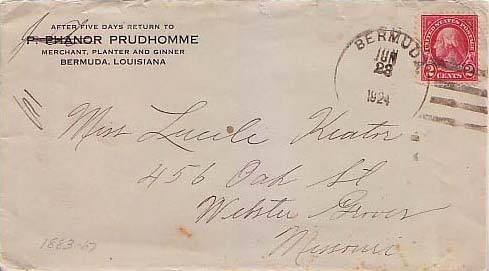 AFTER FIVE DAYS RETURN TO
P. PHANOR PRUDHOMME
MERCHANT, PLANTER AND GINNER
BERMUDA, LOUISIANA
BERMUDA
JUN
23
1924
UNITED STATES POSTAGE
2 CENTS 2
Miss Lucile Keator
456 Oak St
Webster Groves
Missouri